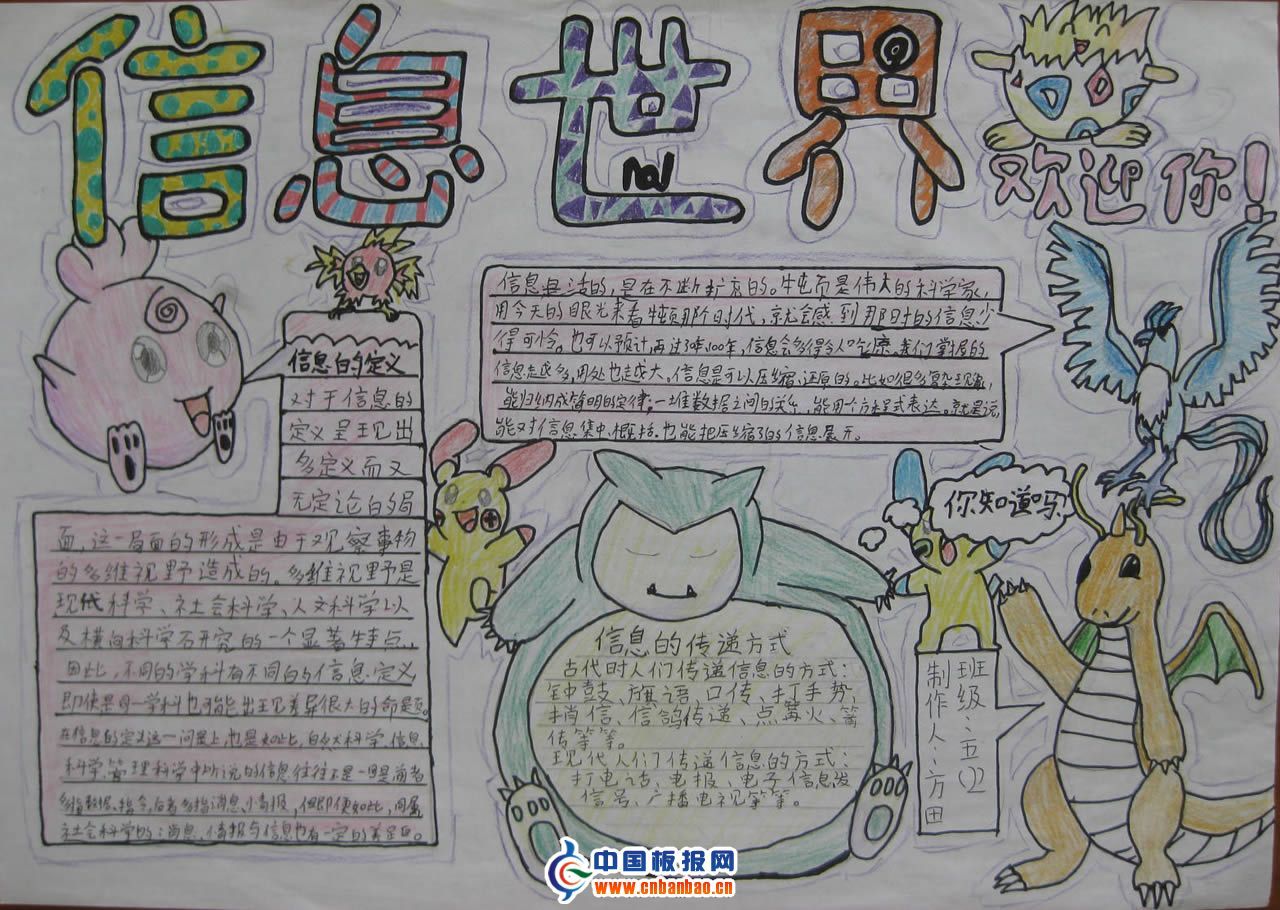 信息世界
欢迎你!
信息的定义
对于信息的
定义呈现出
多定义而又
无定论的局
面,这一局面的形成是由于观察事物
的多维视野造成的。多维视野是
现代科学、社会科学、人文科学以
及横向科学研究的一个显著特点,
因此,不同的学科有不同的信息定义
即使是同一学科也可能出现差异很大的命题。
在信息的定义这一问题上,也是如此,自然科学、信息
科学管理科学中所说的信息往往不是一回是前者
多指数据、指令,后者多指消息、小情报,但即便如此,同属
社会科学的:消息、情报与信息也有一定的差距。
信息是活的,是在不断扩充的。牛顿是伟大的科学家,
用今天的眼光来看牛顿那个时代,就会感到那时的信息少
得可怜。也可以预计,再过了100年,信息会多得令人吃惊。我们掌握的
信息越多,用处也越大。信息是可以压缩、还原的。比如很多复杂现象,
能归纳成简明的定律;一堆数据之间的关系,能用个方程式表达。就是说,
能对信息集中、概括.也能把压缩了的信息展开。
你知道吗?
信息的传递方式
古代时人们传递信息的方式:
钟鼓、旗语、口传、打手势
捎信、信鸽传递、点篝火、
传等等。
现代人们传递信息的方式:
打电话、电报、电子信息发
信号、广播电视等等。
班级:五(1)
制作人:方田
中国板报网
www.cnbanbao.cn